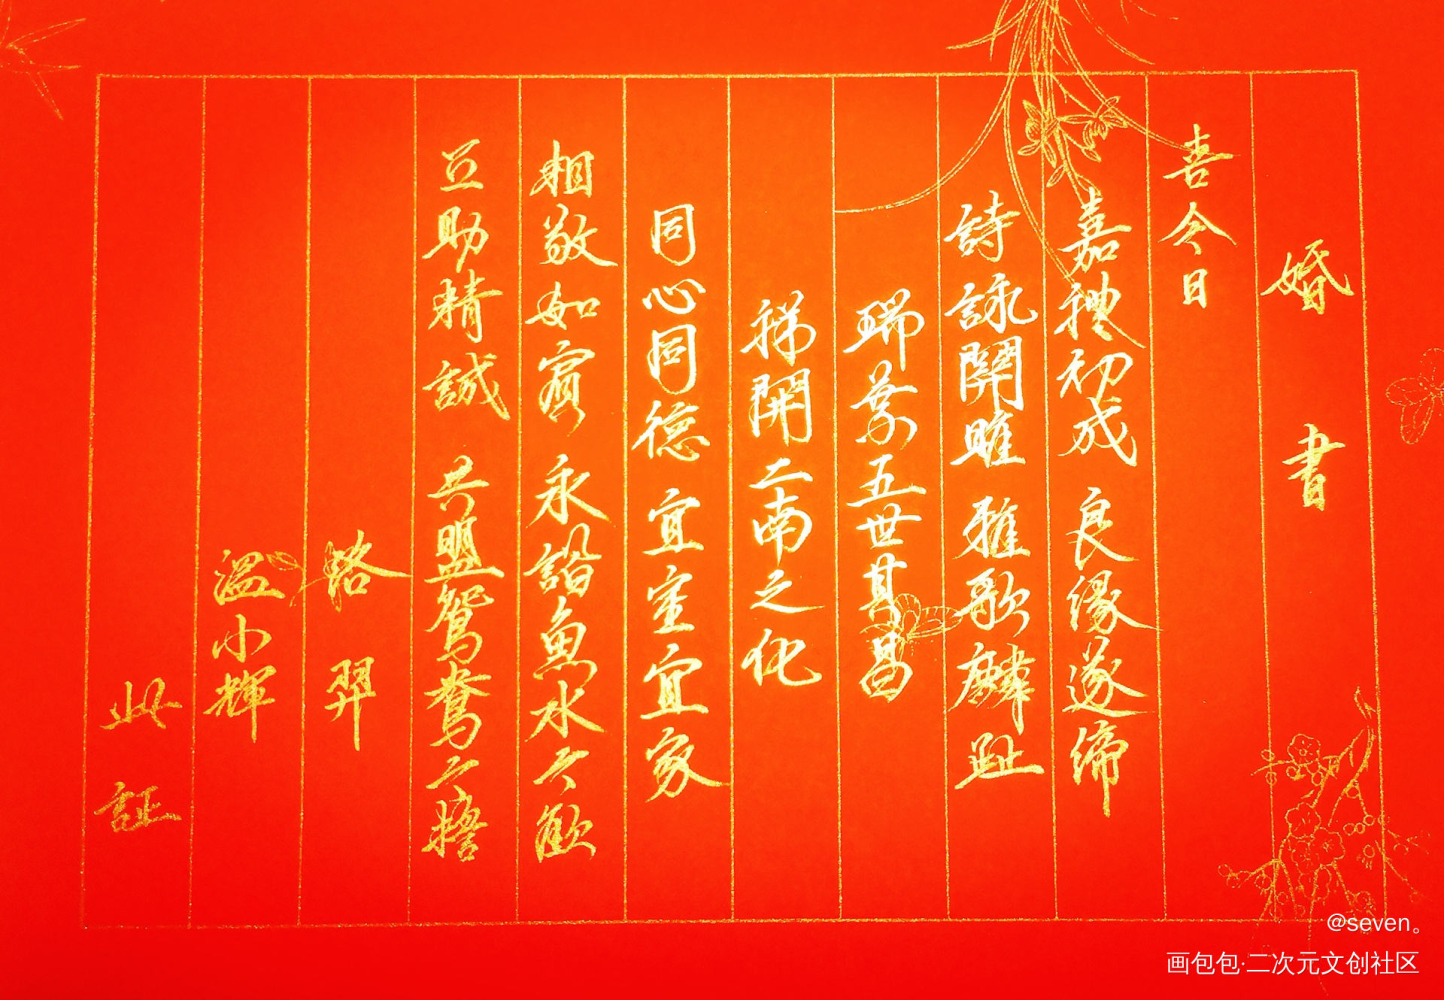 婚書
喜今日
嘉禮初成 良缘遂缔
詩詠關雎 雅歌麟趾
瑞葉五世其昌
祥開二南之化
同心同德 宜室宜家
相敬如賓 永諧魚水之歡
互助精誠 共盟鴛鴦之誓
路羿
溫小輝
此証
@seven。
画包包·二次元文创社区